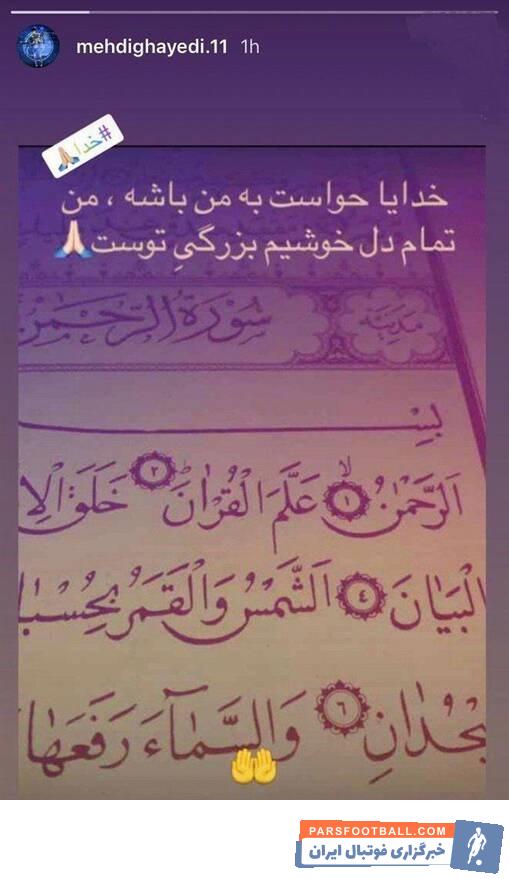 mehdighayedi.11 1h
#خدا🙏🏻
خدایا حواست به من باشه ، من
تمام دل خوشیم بزرگیِ توست🙏🏻
مدنیة سُورَةُ الرَّحْمٰن
بِسْ
اَلرَّحْمٰنُ ۙ﴿١﴾ عَلَّمَ الْقُرْاٰنَ ؕ﴿٢﴾ خَلَقَ الْاِ
الْبَيَانَ ﴿٤﴾ اَلشَّمْسُ وَالْقَمَرُ بِحُسْبَا
جُدَانِ ﴿٦﴾ وَالسَّمَآءَ رَفَعَهَا
🤲
PARSFOOTBALL.COM
خبرگزاری فوتبال ایران